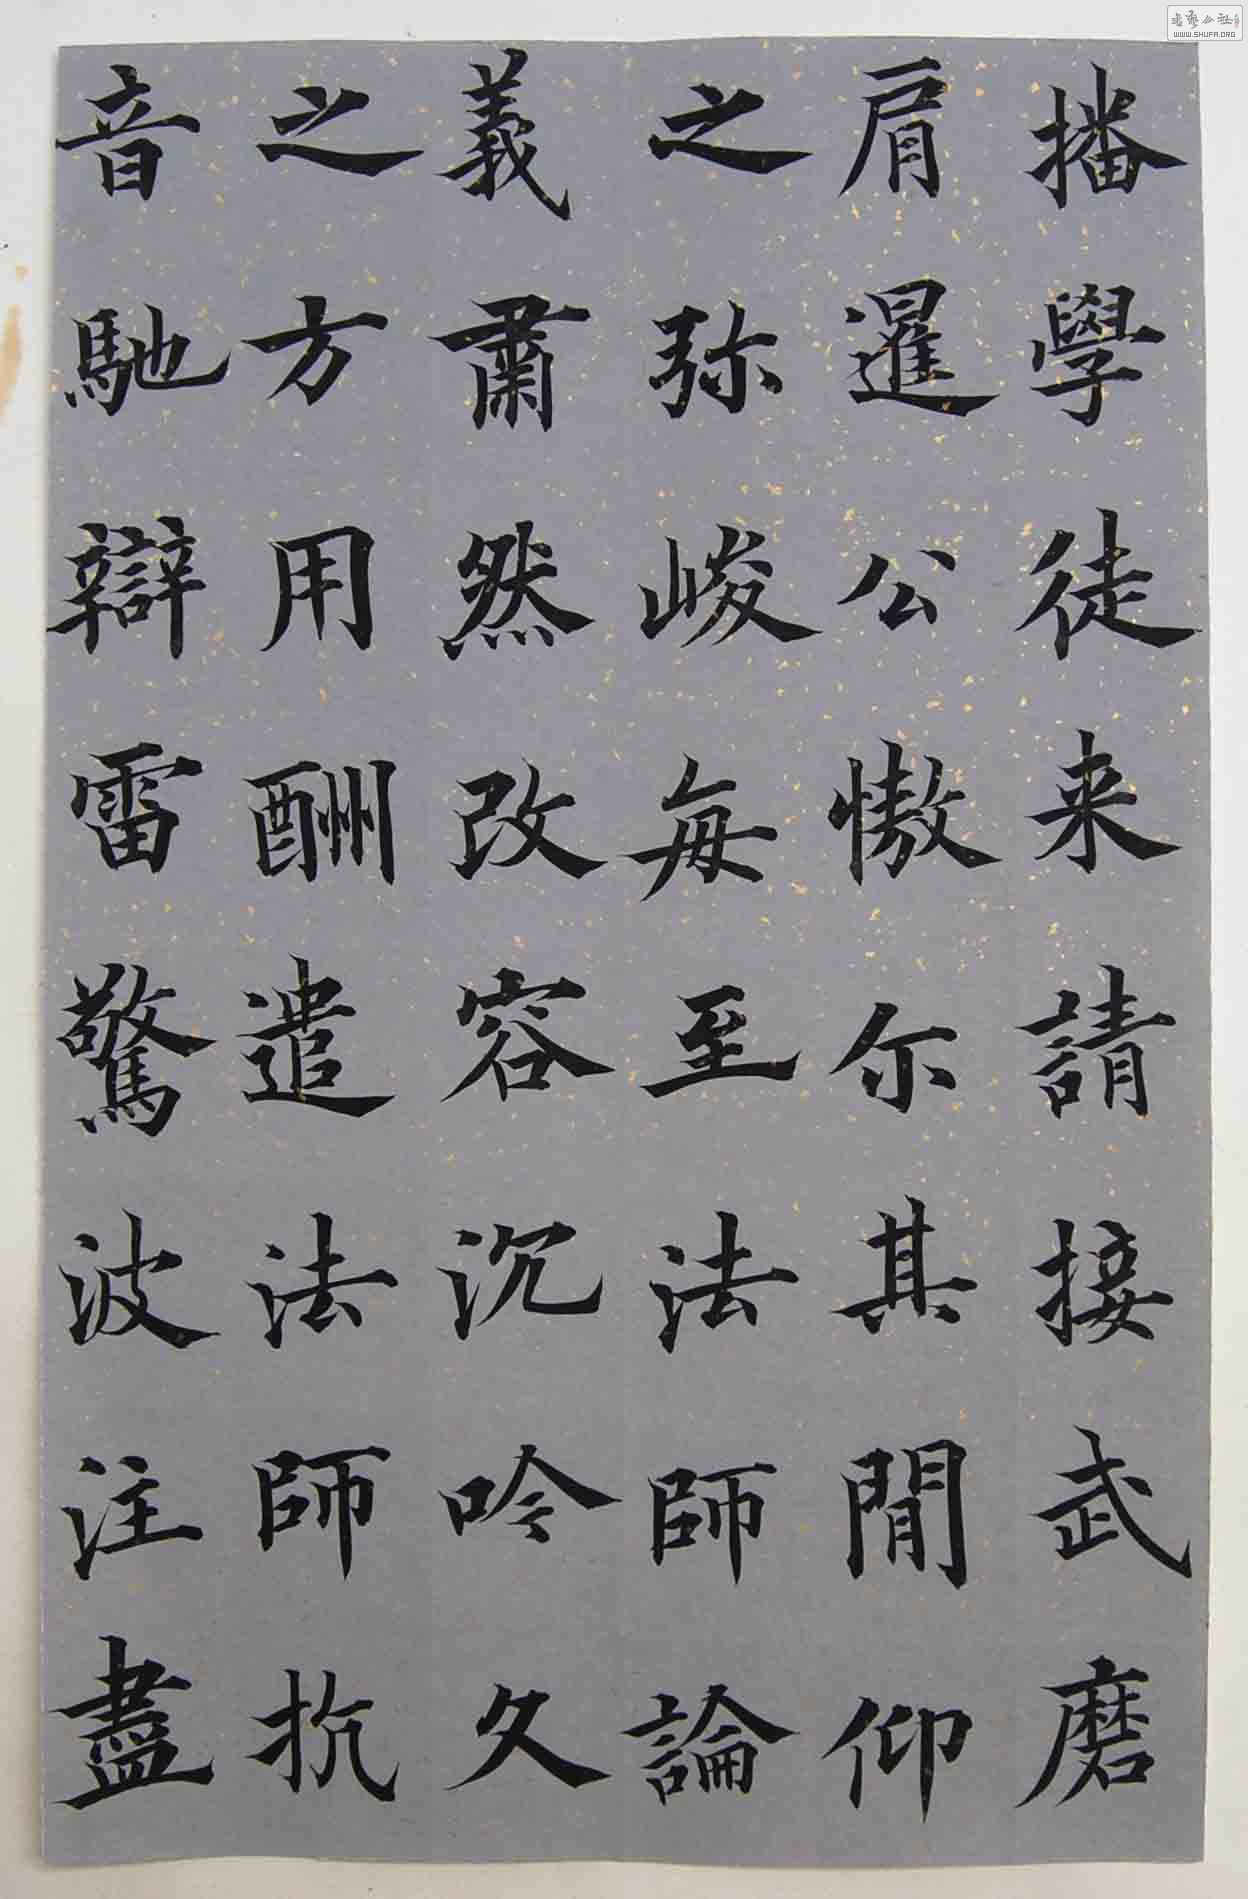 播學徒来請接武磨
肩暹公慠尒其間仰
之弥峻每至法師論
義肅然改容沉吟久
之方用酬遣法師抗
音馳辯雷驚波注盡
書藝公社
WWW.SHUFA.ORG